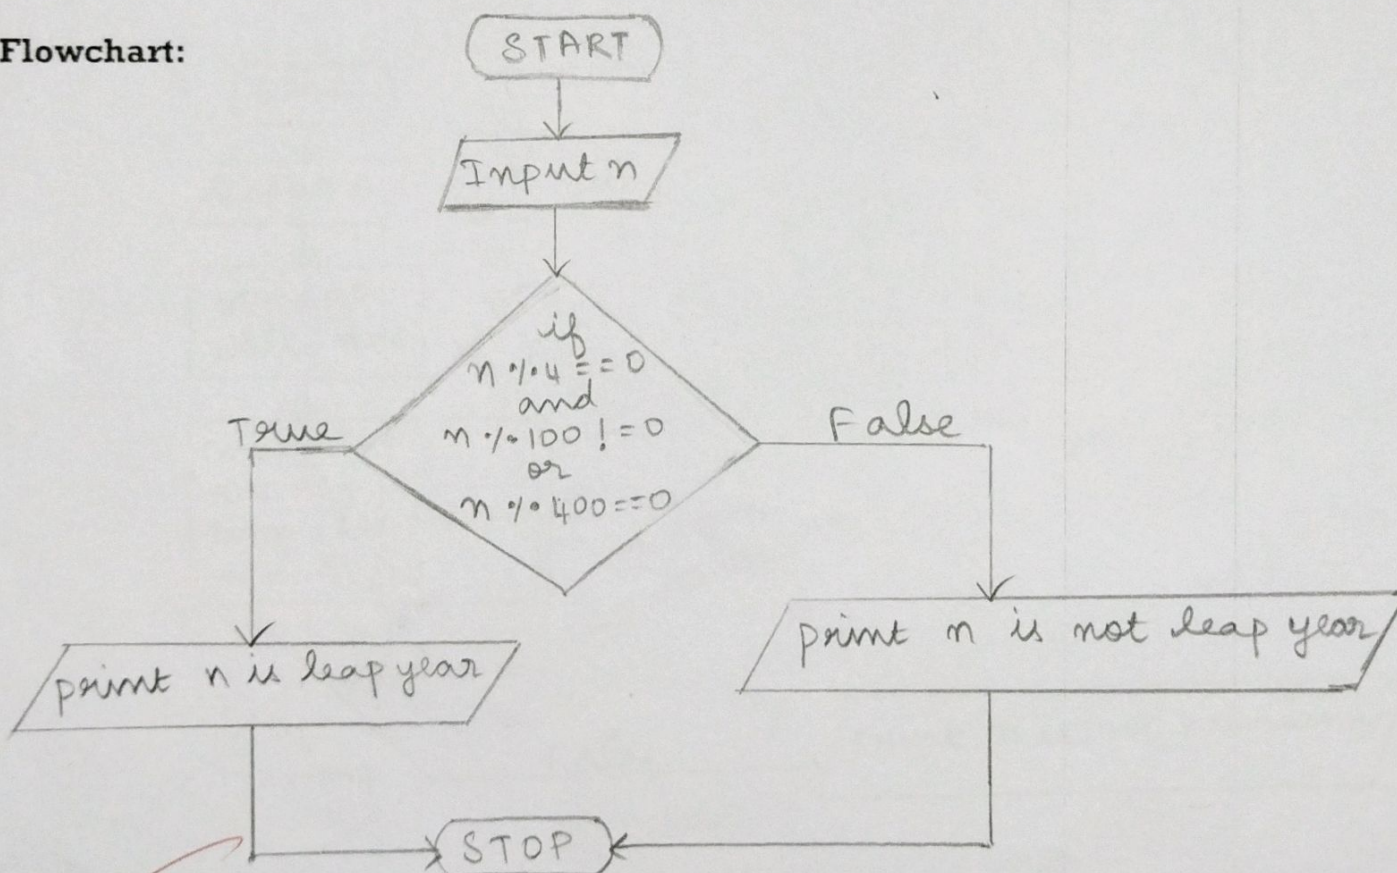 Flowchart:
START
Input n
if
n % 4 == 0
and
n % 100 != 0
or
n % 400 == 0
True
False
print n is leap year
print n is not leap year
STOP